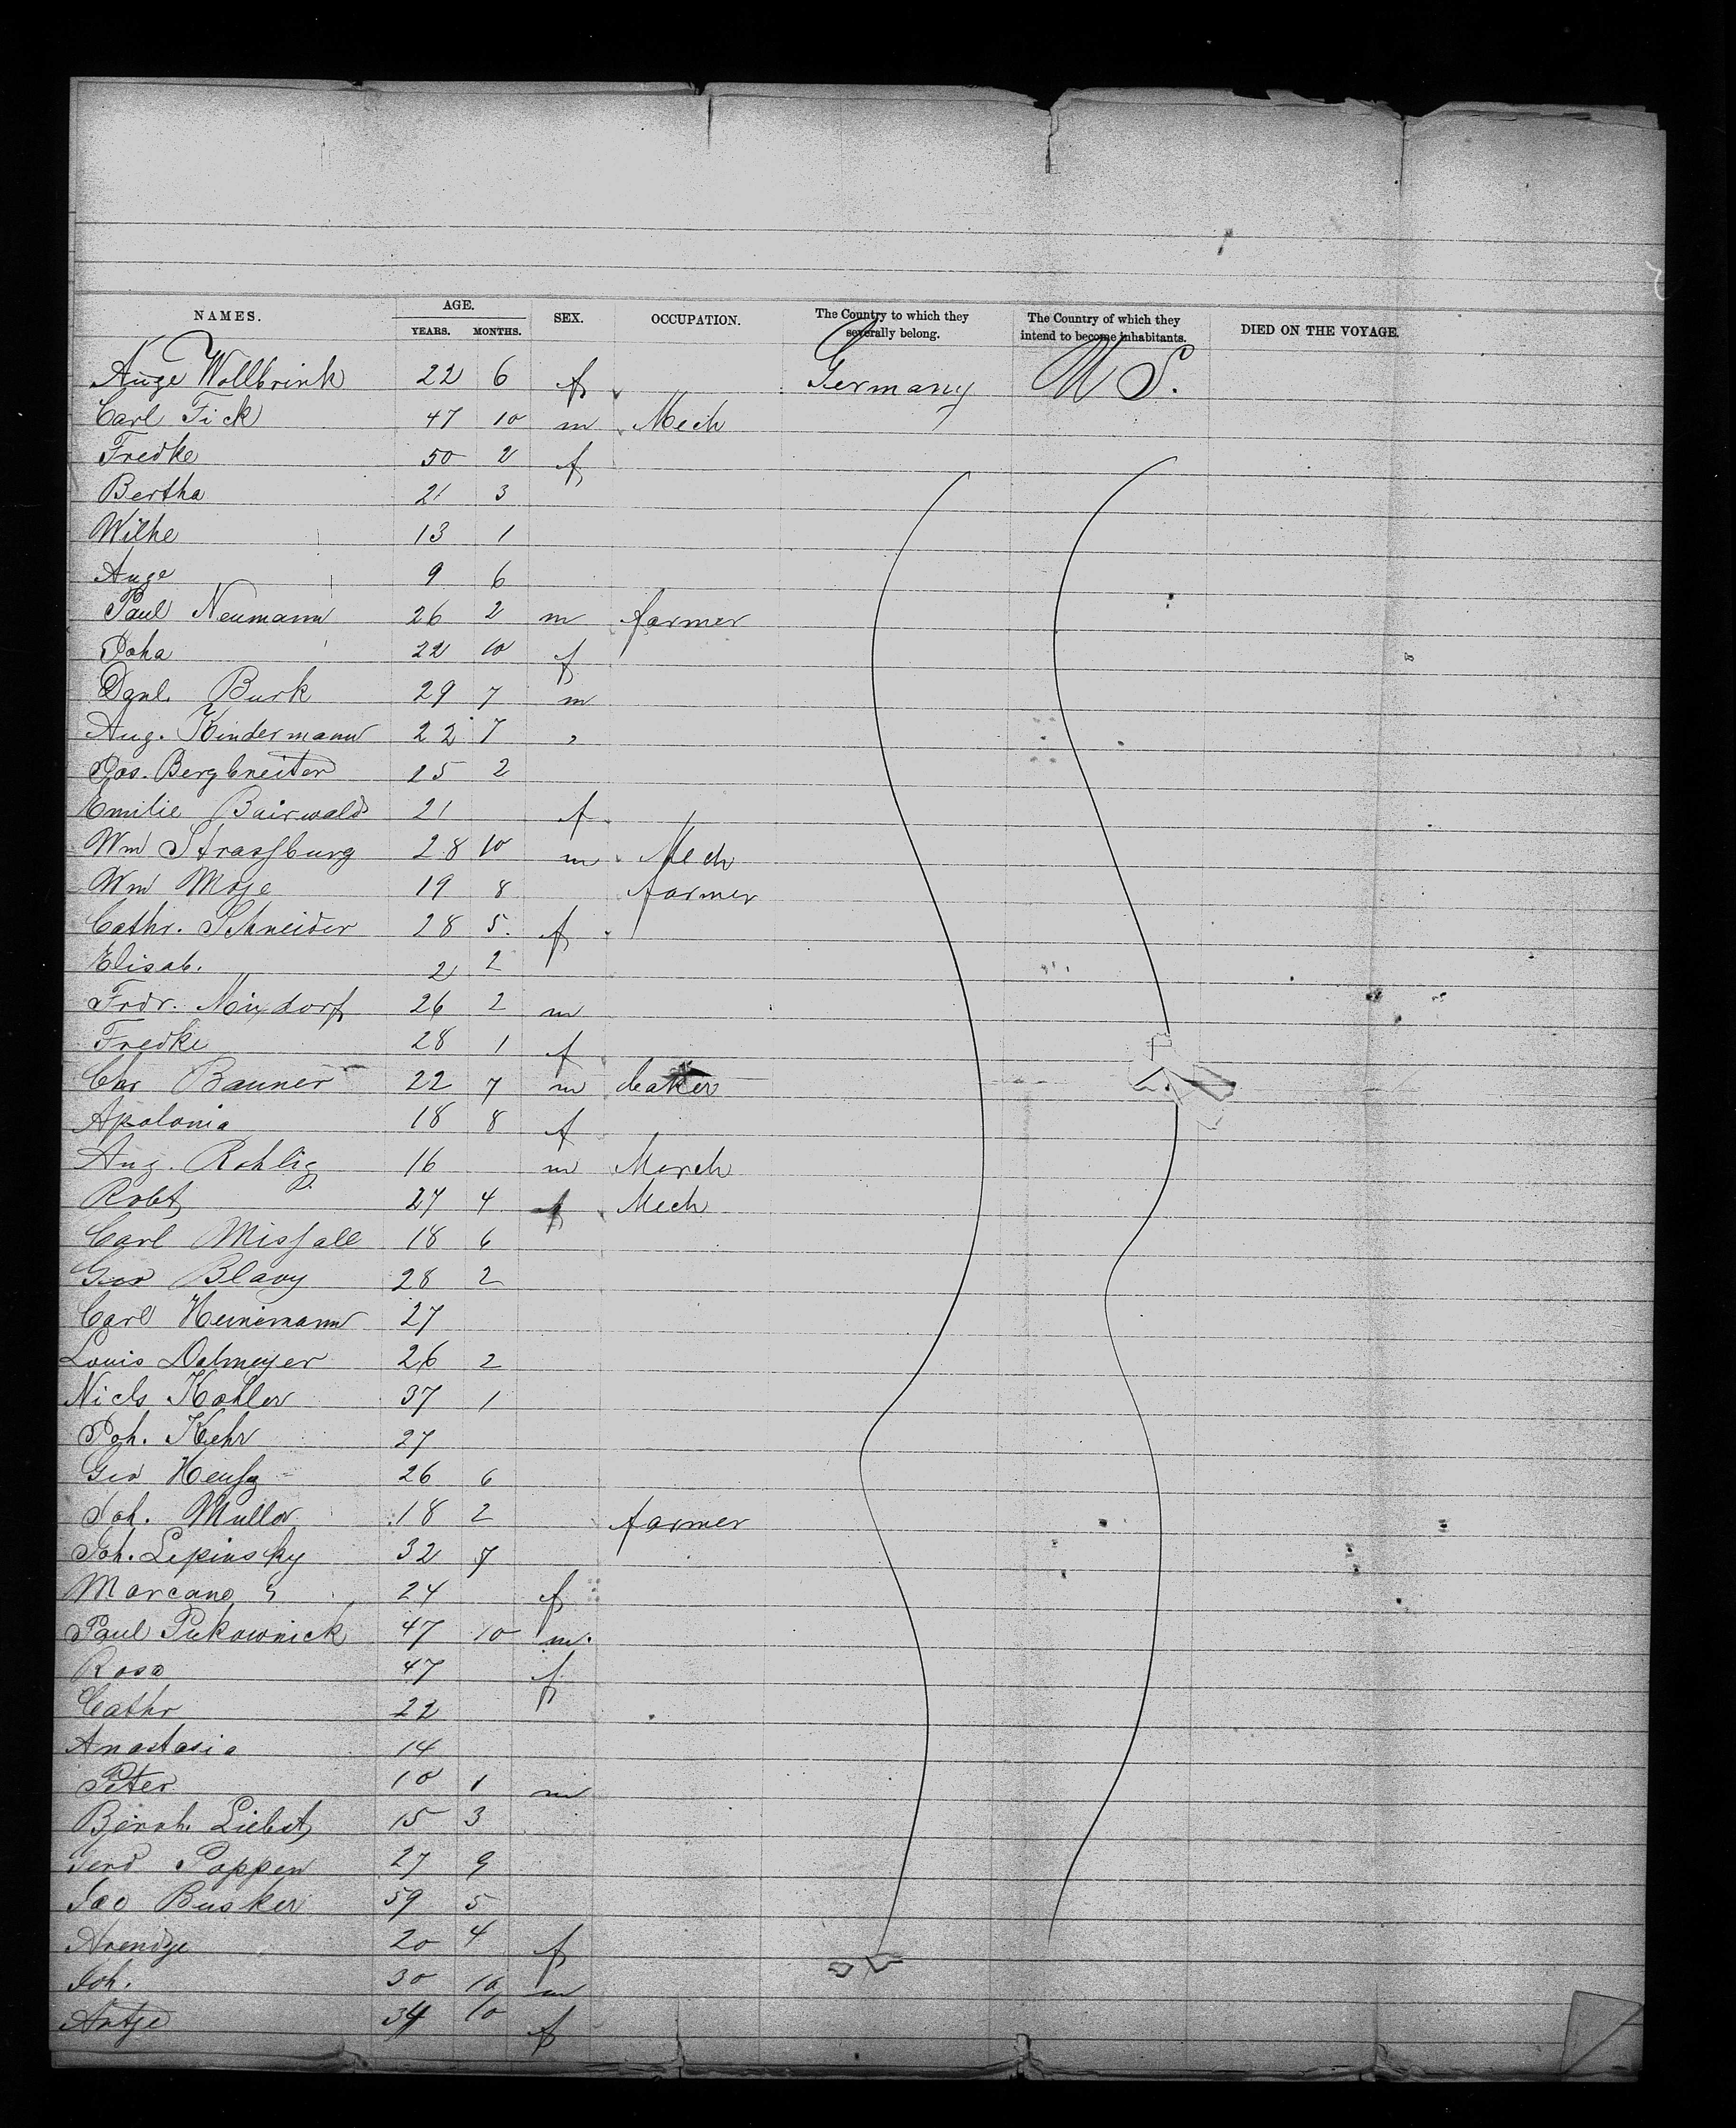 NAMES. AGE. SEX. OCCUPATION. The Country to which they severally belong. The Country of which they intend to become inhabitants. DIED ON THE VOYAGE.
YEARS. MONTHS.
Auge Wollbrink 22 6 f Germany U S.
Carl Fick 47 10 m Mech
Fredke 50 2 f
Bertha 21 3
Wilhe 13 1
Auge 9 6
Paul Neumann 26 2 m farmer
Joha 22 10 f
Danl. Burk 29 7 m
Aug. Kindermann 22 7 "
Jos. Bergbreiter 25 2
Emilie Bairwald 21 f
Wm Strassburg 28 10 m Mech
Wm Moje 19 8 farmer
Cathr. Schneider 28 5. f
Elisab. 2 2
Frdr. Nixdorf 26 2 m
Fredke 28 1 f
Chr Banner 22 7 m baker
Apolonia 18 8 f
Aug. Rohlig 16 m Merch
Robt 27 4 Mech
Carl Missall 18 6
Geo 28 2
Carl Heinemann 27
Louis Dalmeyer 26 2
Nicls Kohler 37 1
Joh. Kehr 27
Geo 26 6
Joh. Muller 18 2 farmer
Joh. Lepinsky 32 7
Marcano " 24 f
Paul Pukownick 47 10 m.
Rosa 47 f
Cathr 22
Anastasia 14
Peter 10 1 m
Bernh. Liebst 15 3
Ferd Poppen 27 9
Jac Busker 59 5
Arendje 20 4 f
Joh. 30 10 m
Antje 34 10 f